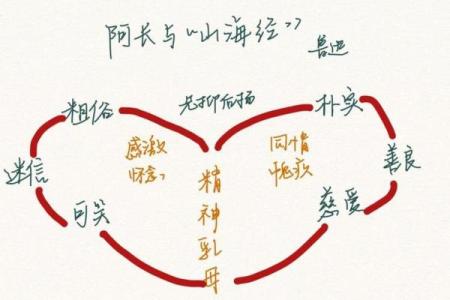 阿长与“山海经”
鲁迅
粗俗
先抑后扬
朴实
迷信
感激
怀念
同情
愧疚
善良
可笑
精神乳母
慈爱